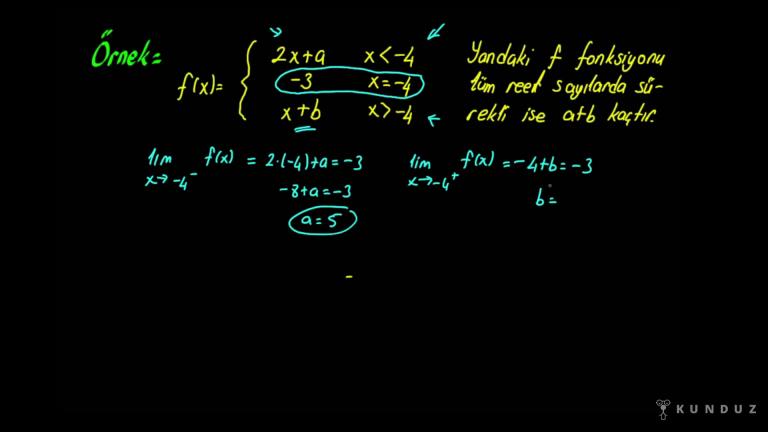 Örnek=
f(x)= { 2x+a x<-4
-3 x=-4
x+b x>-4
Yandaki f fonksiyonu
tüm reel sayılarda sü-
rekli ise a+b kaçtır.
lim x→-4⁻ f(x) = 2.(-4)+a=-3
-8+a=-3
a=5
lim x→-4⁺ f(x) = -4+b=-3
b=
-
KUNDUZ